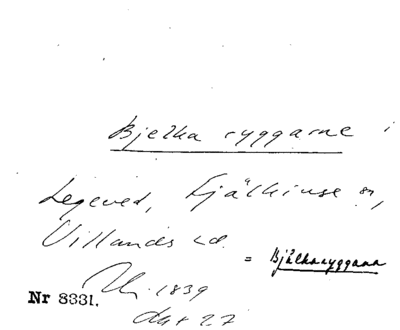 Bjelka ryggarne i
Legeved, Fjälkinge sn,
Villands hd.
= Bjälkaryggarna
1839
Nr 8331.
akt 27